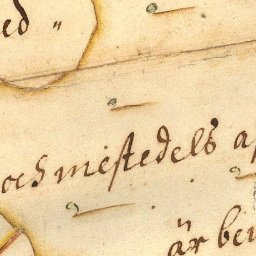 ed „
och mestedels
är be